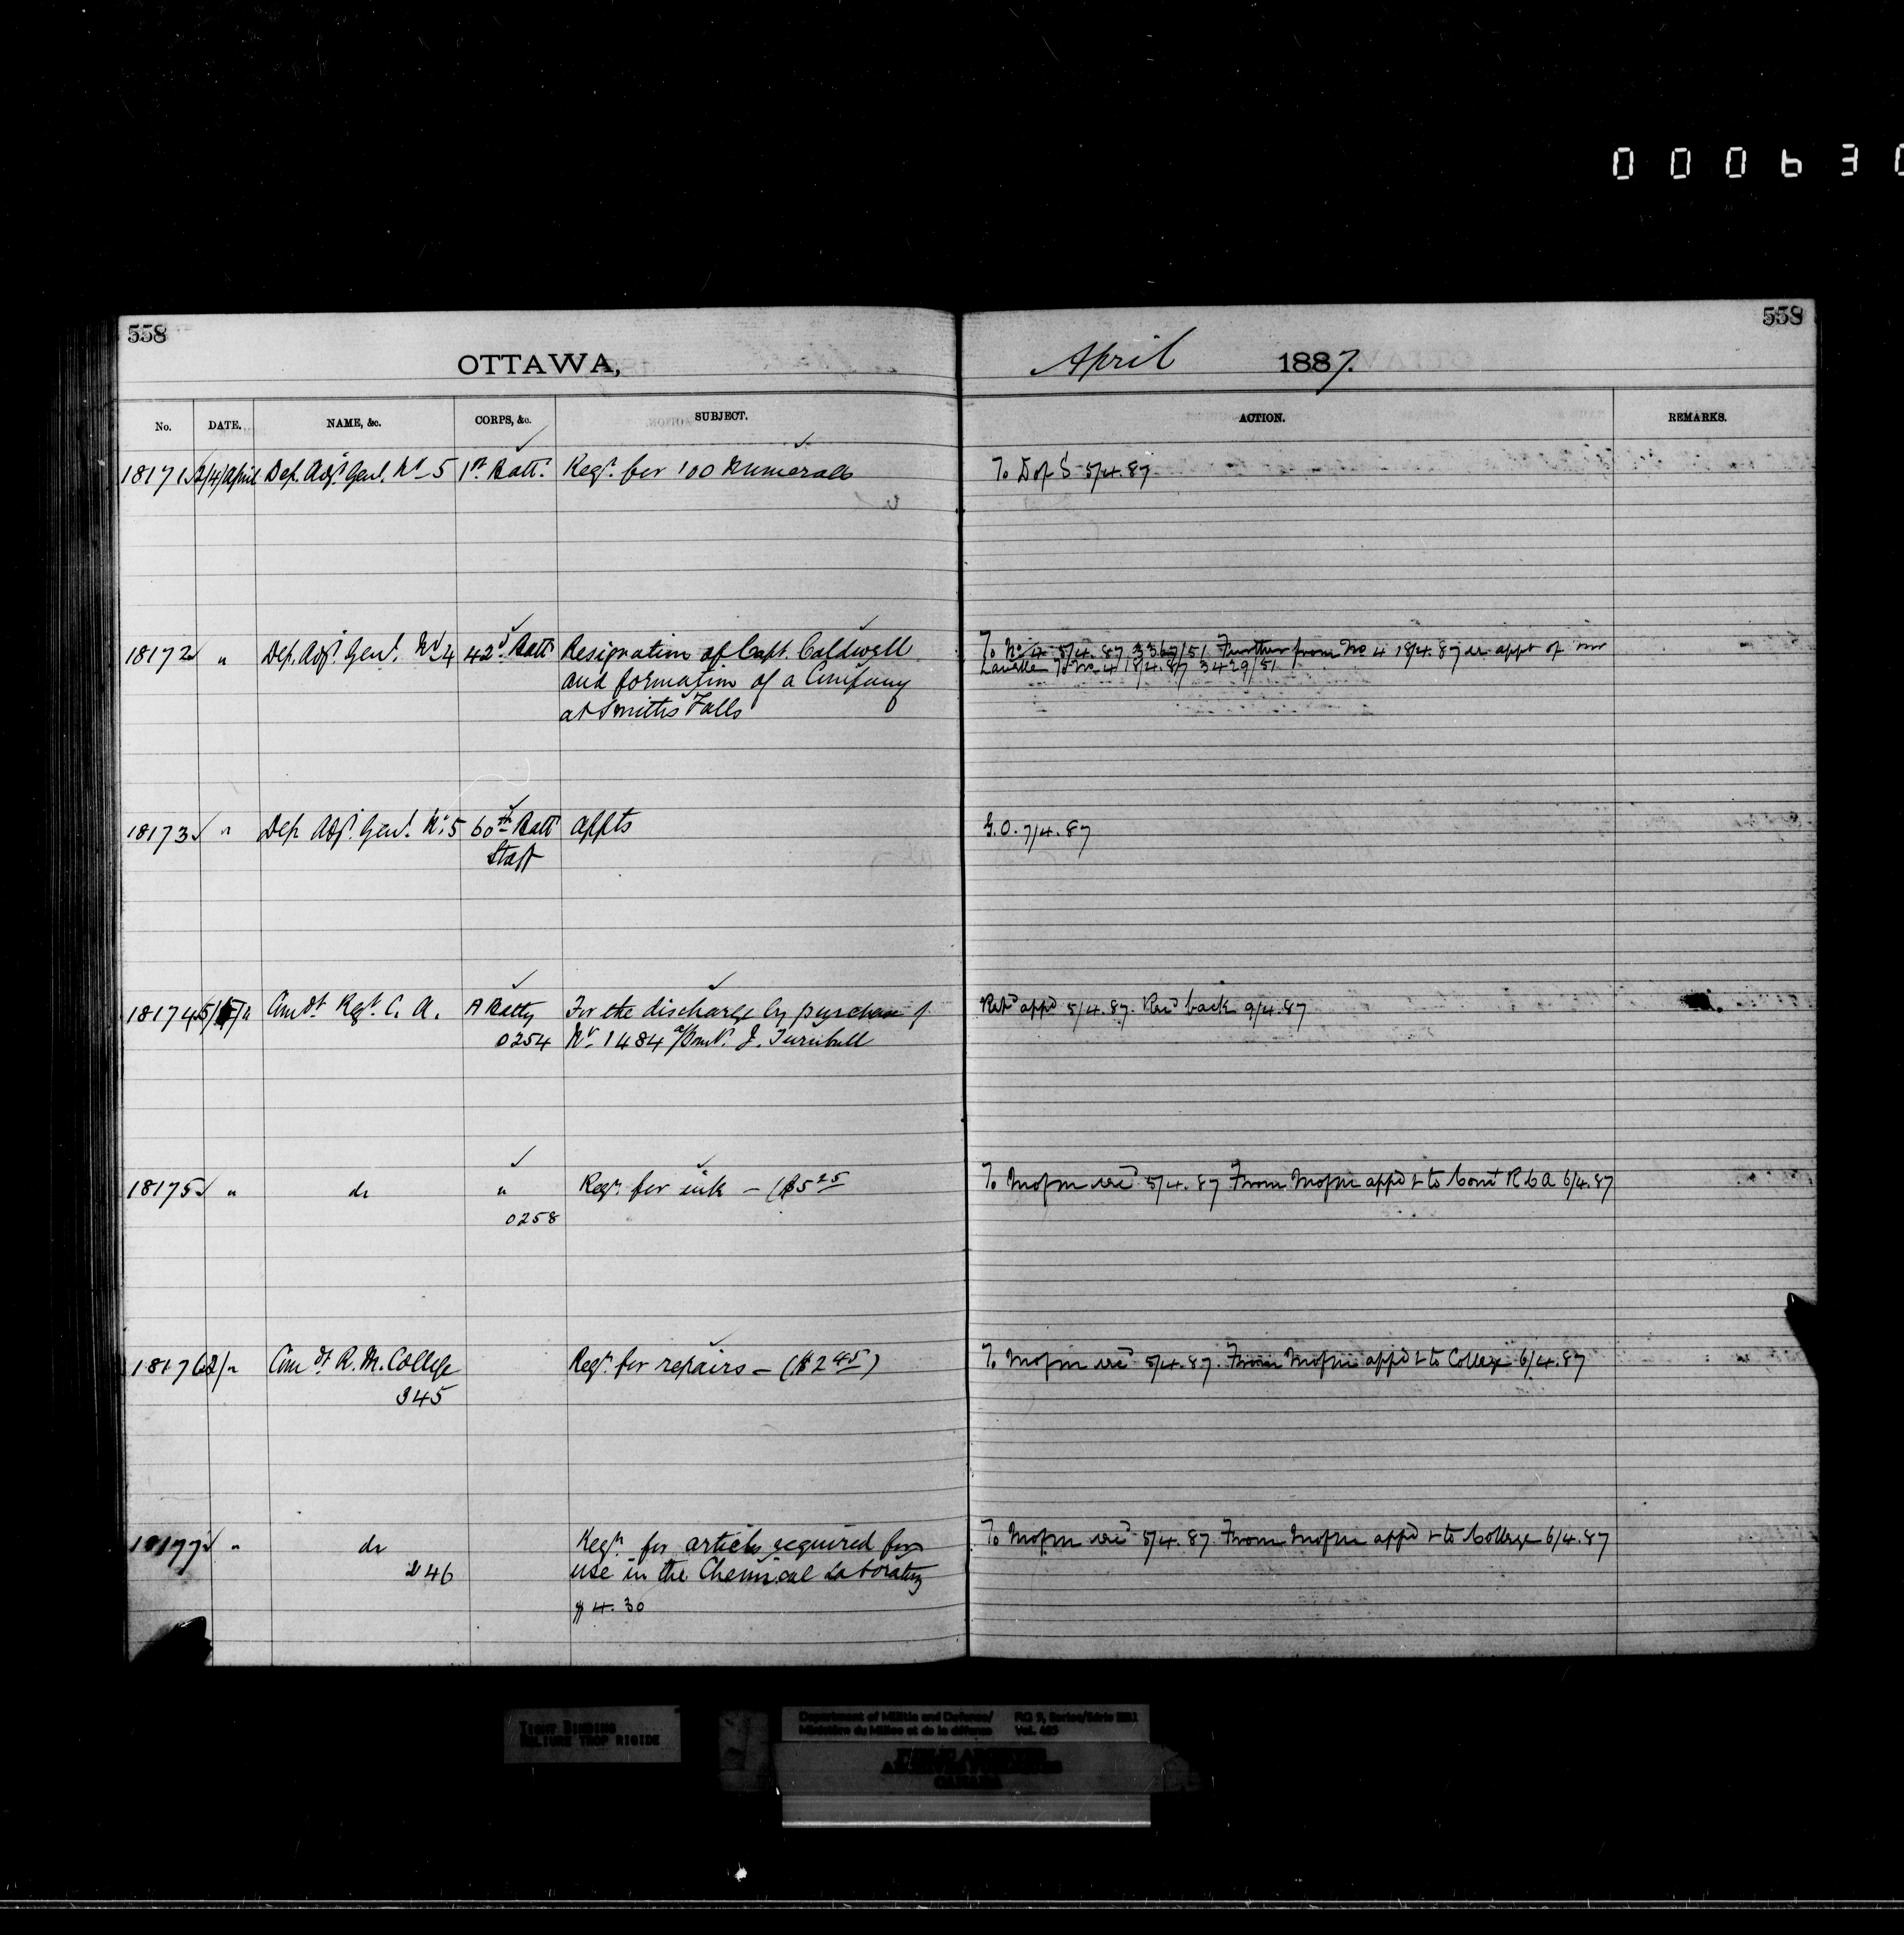 000630
558
558
OTTAWA,
April 1887.
No. DATE. NAME, &c. CORPS, &c. SUBJECT. ACTION. REMARKS.
18171 /4/April Dep. Adjt. Genl. No 5 1st Batt. Reqn. for 100 Numerals To D of S 5/4.87
18172 " Dep. Adjt. Genl. No 4 42d Batt. Resignation of Capt. Caldwell To No 4 5/4.87 3367/51 Further from No 4 18/4.87 appt of
and formation of a Company To No 4 18/4.87 3429/51
at Smiths Falls
18173 " Dep. Adjt. Genl. No. 5 60th Batt appts G.O. 7/4.87
Staff
18174 5/ /" Comdt. Regt. C. A. A Batty For the discharge by purchase of Retd appd 5/4.87. Recd back 9/4.87
0254 No. 1484 a/Bomdr. J. Turnbull
18175 " do " Reqn. for ink – ($5 25 To M of M 5/4.87 From M of M appd & to Comt R C A 6/4.87
0258
18176 2/" Comdt R. M. College Reqn. for repairs – ($2 45) To M of M 5/4.87. From M of M appd & to College 6/4.87
345
18177 " do Reqn. for articles required for To M of M 5/4.87. From M of M appd & to College 6/4.87
46 use in the Chemical Laboratory
$4.30
TIGHT BINDING
RELIURE TROP RIGIDE
Department of Militia and Defence/ RG 9, Series/Série IIB1
Ministère du Milice et de la défense Vol.
PUBLIC ARCHIVES
ARCHIVES PUBLIQUES
CANADA